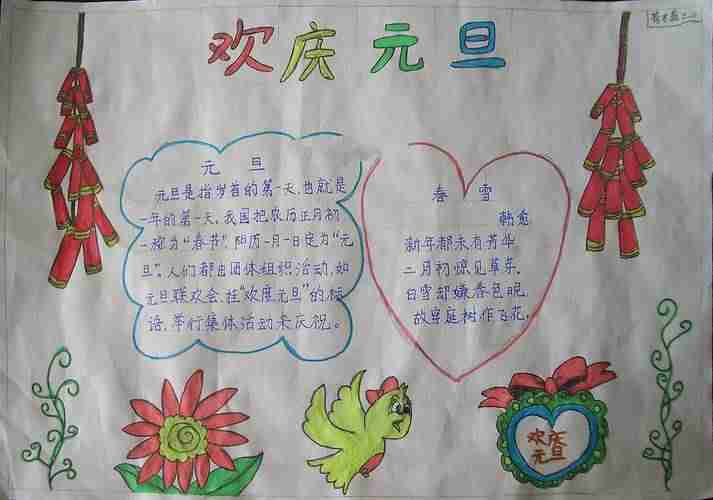 欢庆元旦
元旦
元旦是指岁首的第一天,也就是
一年的第一天。我国把农历正月初
一称为“春节”,阳历一月一日定为“元
旦”。人们都由团体组织活动,如
元旦联欢会、挂“欢度元旦”的标
语,举行集体活动来庆祝。
春雪
韩愈
新年都未有芳华
二月初惊见草芽。
白雪却嫌春色晚
故穿庭树作飞花。
欢度
元旦